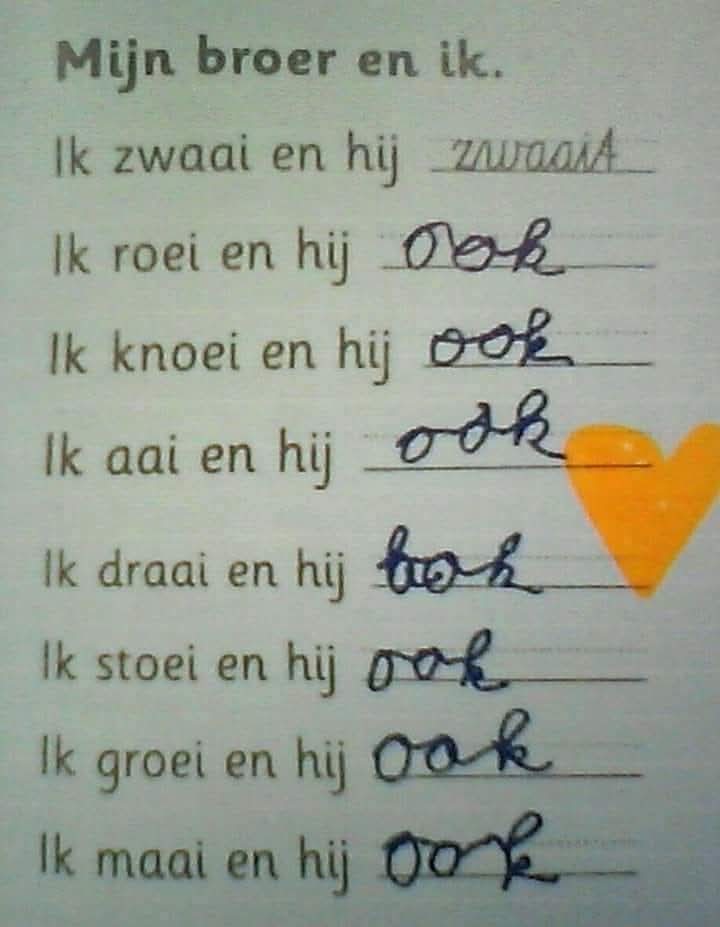 Mijn broer en ik.
Ik zwaai en hij zwaait
Ik roei en hij ook
Ik knoei en hij ook
Ik aai en hij ook
Ik draai en hij ook
Ik stoei en hij ook
Ik groei en hij ook
Ik maai en hij ook